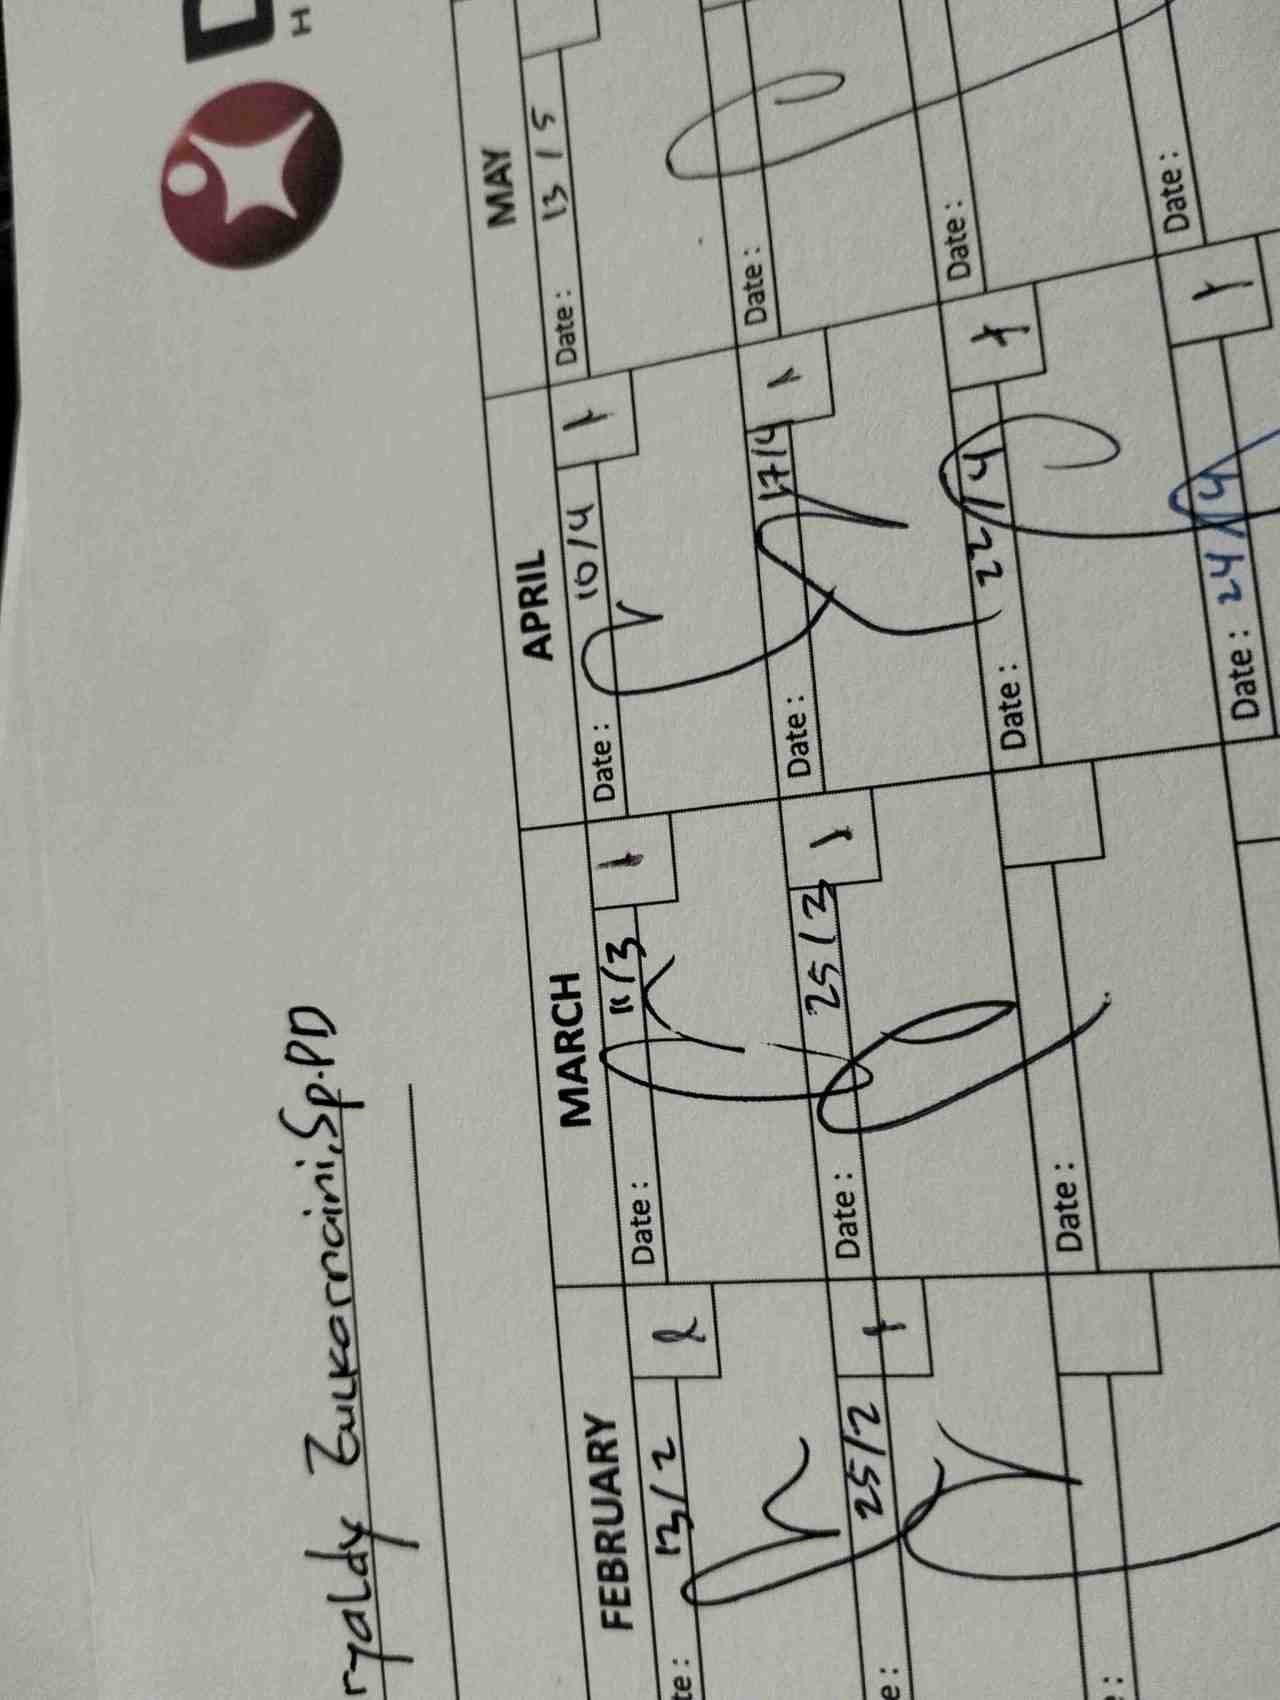 ryaldy Zulkarnaini, Sp.PD
FEBRUARY MARCH APRIL MAY
te: 13/2 Date: 11/3 Date: 10/4 Date: 13/5
e: 25/2 Date: 25/3 Date: 17/4 Date:
: Date: Date: 22/4 Date:
Date: 24/4 Date: